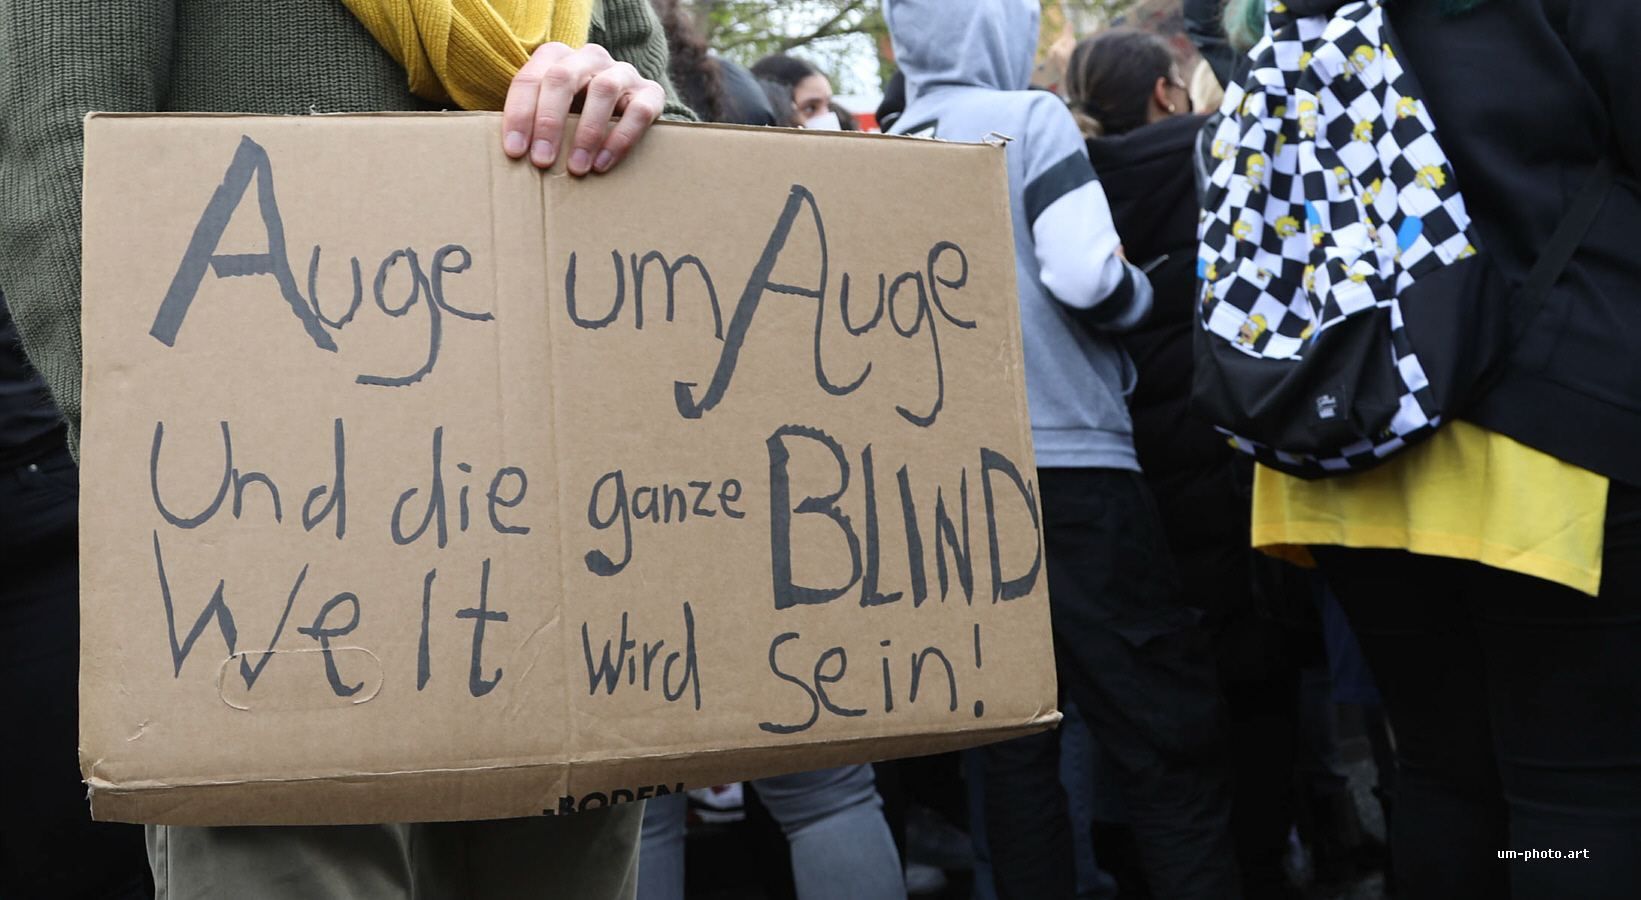 Auge um Auge
Und die ganze BLIND
Welt wird sein!
-BODEN-
um-photo.art